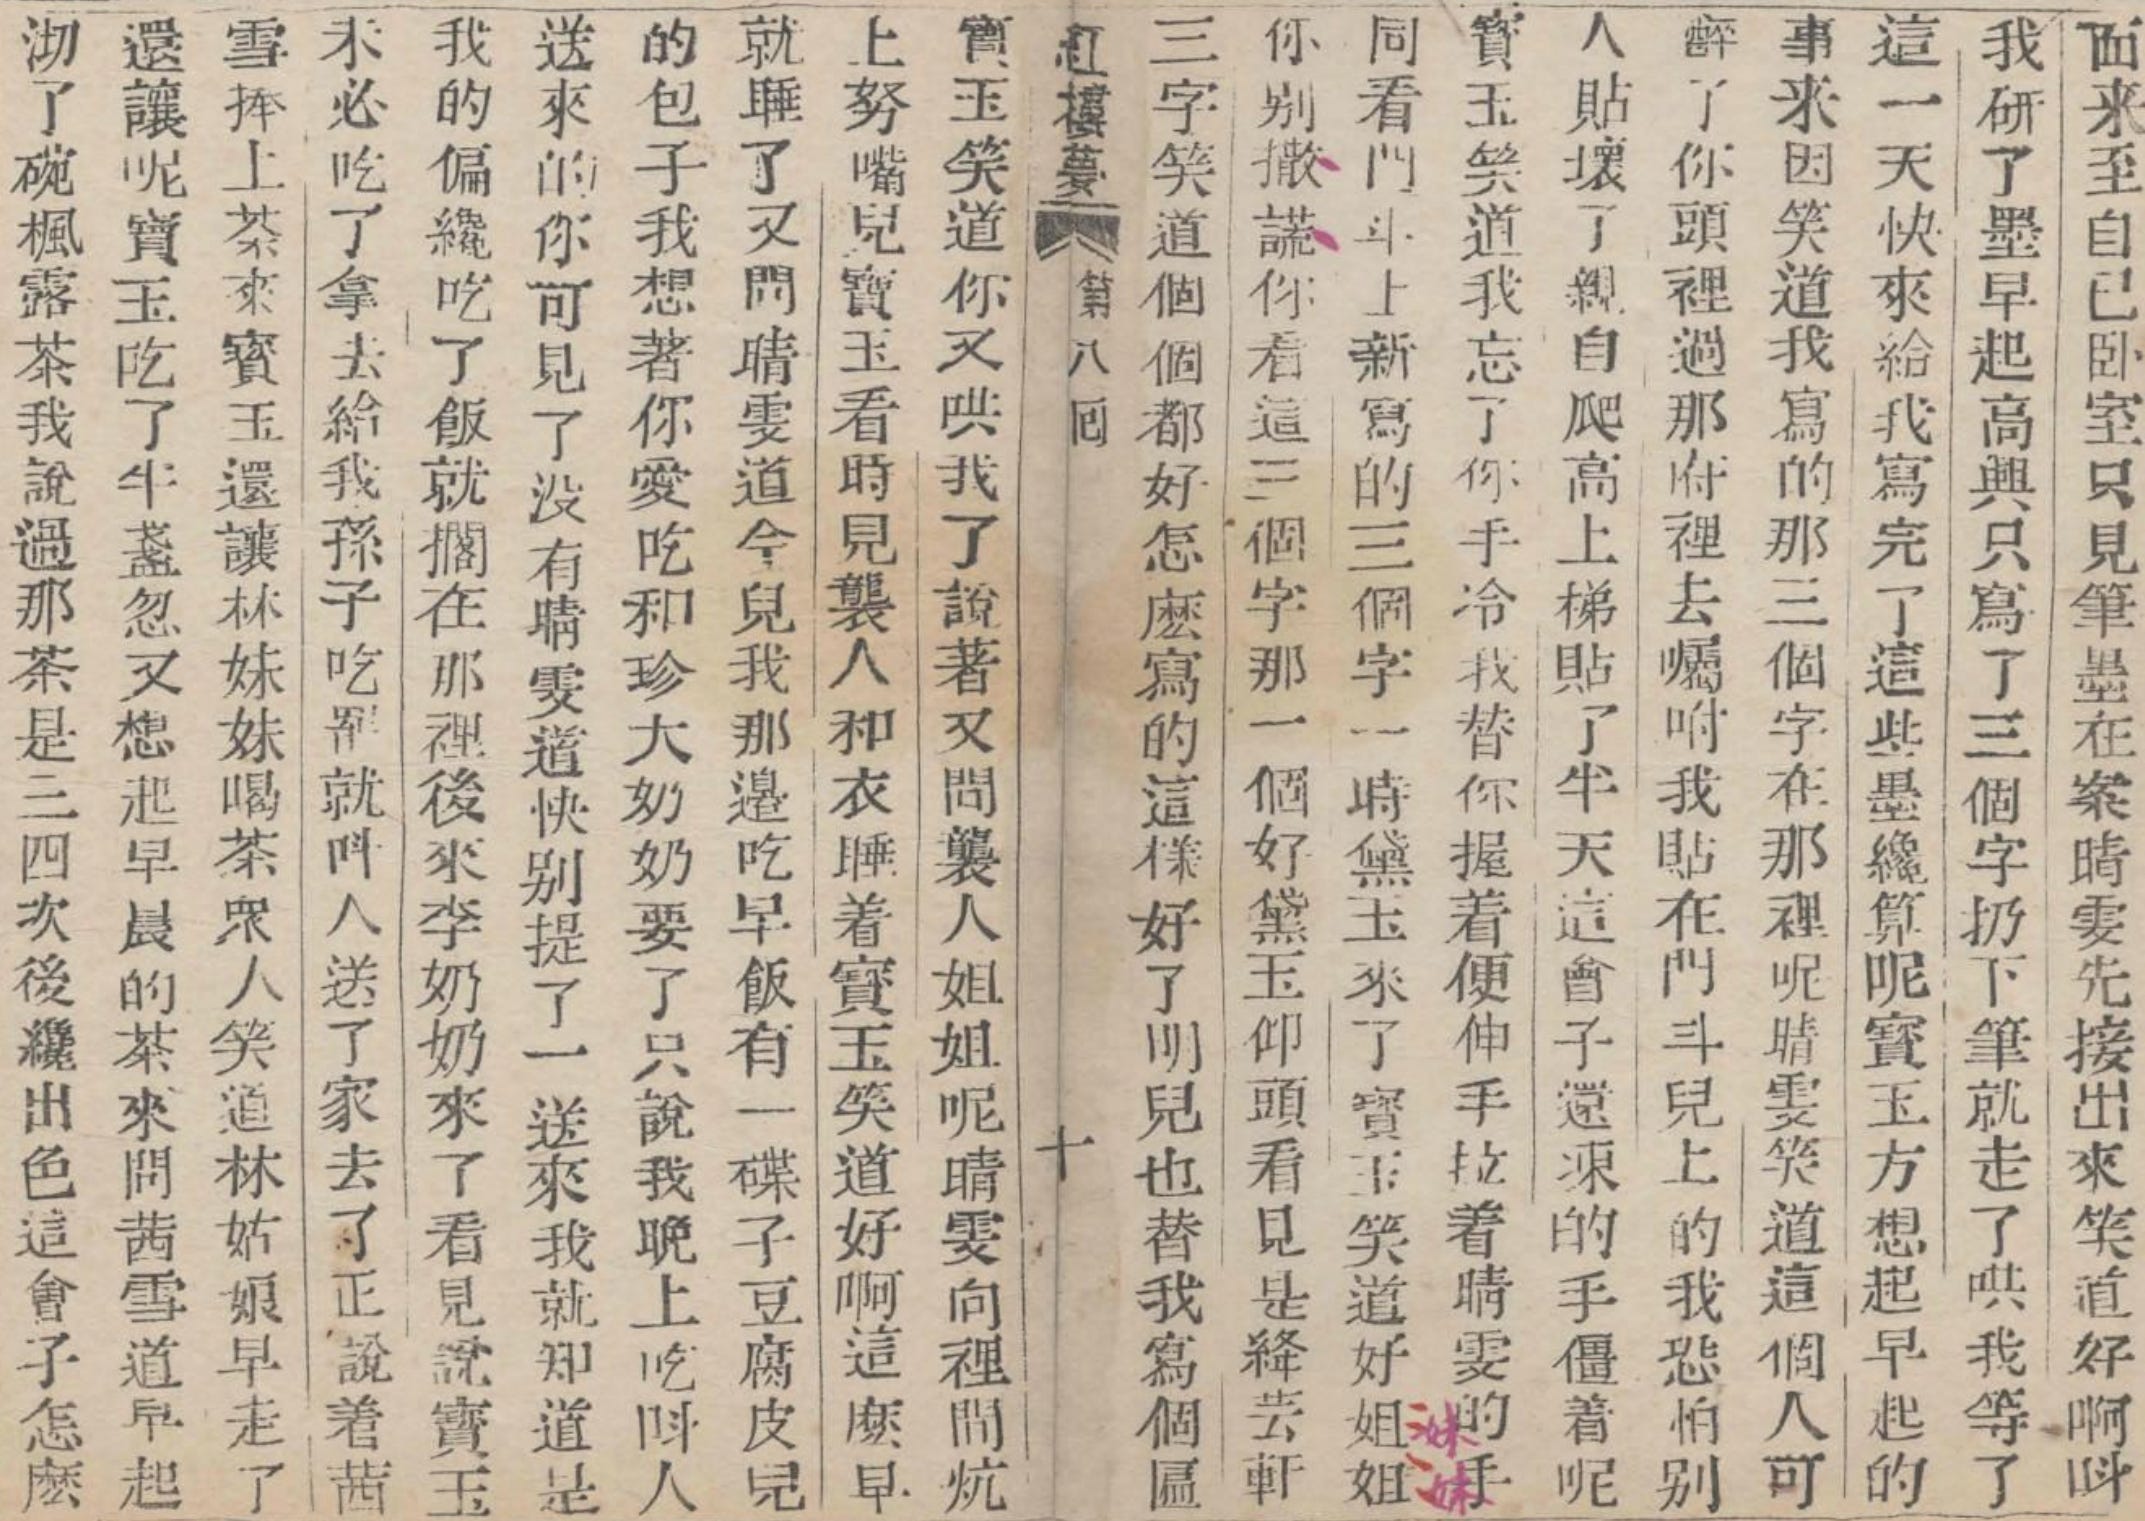 面来至自已卧室只見筆墨在案晴雯先接出來笑道好啊呌
我研了墨早起高興只寫了三個字扔下筆就走了哄我等了
這一天快來給我寫完了這些墨纔算呢寳玉方想起早起的
事来因笑道我寫的那三個字在那裡呢晴雯笑道這個人可
醉了你頭裡過那府裡去囑咐我貼在門斗兒上的我恐怕别
人貼壞了親自爬高上梯貼了半天這會子還凍的手僵着呢
寳玉笑道我忘了你手冷我替你握着便伸手拉着晴雯的手
同看門斗上新寫的三個字一時黛玉來了寳玉笑道好姐姐
妹妹
你别撒謊你看這三個字那一個好黛玉仰頭看見是絳芸軒
三字笑道個個都好怎麽寫的這樣好了明兒也替我寫個匾
紅樓夢 第八囘 十
寳玉笑道你又哄我了說著又問襲人姐姐呢晴雯向裡間炕
上努嘴兒寶玉看時見襲人和衣睡着寳玉笑道好啊這麽早
就睡了又問晴雯道今兒我那邉吃早飯有一碟子豆腐皮兒
的包子我想著你愛吃和珍大奶奶要了只說我晚上吃呌人
送來的你可見了没有晴雯道快别提了一送來我就知道是
我的偏纔吃了飯就擱在那裡後來李奶奶來了看見說寳玉
未必吃了拿去給我孫子吃罷就呌人送了家去了正說着茜
雪捧上茶來寳玉還讓林妹妹喝茶衆人笑道林姑娘早走了
還讓呢寶玉吃了半盞忽又想起早晨的茶來問茜雪道早起
沏了碗楓露茶我說過那茶是三四次後纔出色這會子怎麽